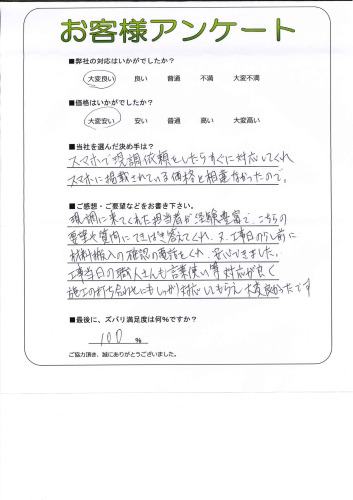 お客様アンケート
■弊社の対応はいかがでしたか？
大変良い 良い 普通 不満 大変不満
■価格はいかがでしたか？
大変安い 安い 普通 高い 大変高い
■当社を選んだ決め手は？
スマホで現調依頼をしたらすぐに対応してくれ
スマホに掲載されている価格と相違なかったので。
■ご感想・ご要望などをお書き下さい。
現調に来てくれた担当者が経験豊富で、こちらの
要望や質問にてきぱき答えてくれ、又、工事日の少し前に
材料搬入の確認の電話をくれ、安心できました。
工事当日の職人さんも言葉使い等対応が良く
施工の打ち合わせにもしっかり対応してもらえ大変良かったです
■最後に、ズバリ満足度は何%ですか？
100 %
ご協力頂き、誠にありがとうございました。